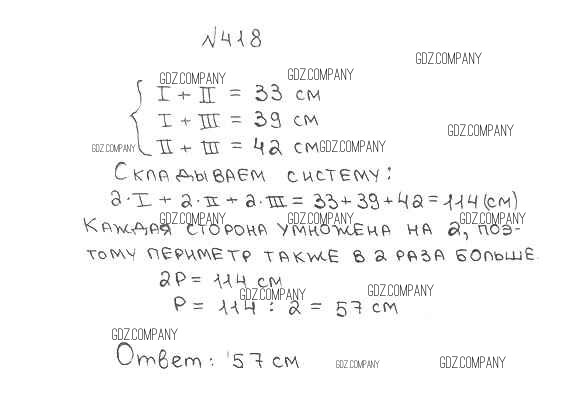 №418
GDZ.COMPANY
GDZ.COMPANY GDZ.COMPANY
I + II = 33 см
I + III = 39 см
GDZ.COMPANY
GDZ.COMPANY II + III = 42 см GDZ.COMPANY
Складываем систему:
2·I + 2·II + 2·III = 33+39+42=114(см)
GDZ.COMPANY GDZ.COMPANY GDZ.COMPANY
Каждая сторона умножена на 2, поэ-
тому периметр также в 2 раза больше.
2P = 114 см
GDZ.COMPANY GDZ.COMPANY
P = 114 : 2 = 57 см
GDZ.COMPANY
Ответ: 57 см
GDZ.COMPANY GDZ.COMPANY